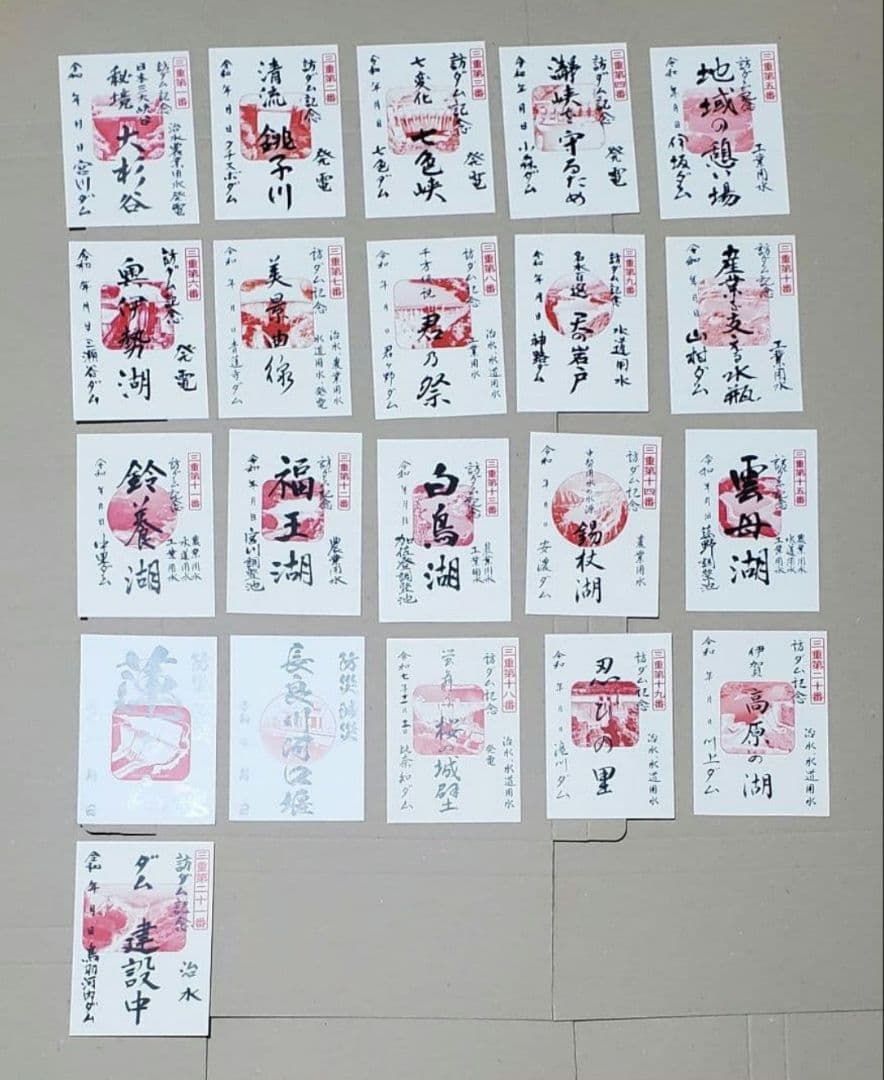 三重第一番
訪ダム記念
日本三大峡谷
秘境 大杉谷
治水農業用水発電
令和 年 月 日 宮川ダム
三重第二番
訪ダム記念
発電
清流 銚子川
令和 年 月 日 クチスボダム
三重第三番
訪ダム記念
発電
七変化 七色峡
令和 年 月 日 七色ダム
三重第四番
訪ダム記念
発電
瀞峡を守るため
令和 年 月 日 小森ダム
三重第五番
訪ダム記念
工業用水
地域の憩い場
令和 年 月 日 伊坂ダム
三重第六番
訪ダム記念
発電
奥伊勢湖
令和 年 月 日 三瀬谷ダム
三重第七番
訪ダム記念
治水、農業用水
水道用水、発電
美景曲線
令和 年 月 日 青蓮寺ダム
三重第八番
訪ダム記念
治水、水道用水
工業用水
千方伝説
君乃祭
令和 年 月 日 君ヶ野ダム
三重第九番
訪ダム記念
水道用水
名水百選
天の岩戸
令和 年 月 日 神路ダム
三重第十番
訪ダム記念
工業用水
産業を支える水瓶
令和 年 月 日 山村ダム
三重第十一番
訪ダム記念
農業用水
水道用水
工業用水
鈴養湖
令和 年 月 日 中里ダム
三重第十二番
訪ダム記念
農業用水
福王湖
令和 年 月 日 宮川調整池
三重第十三番
訪ダム記念
農業用水
工業用水
白鳥湖
令和 年 月 日 加佐登調整池
三重第十四番
訪ダム記念
農業用水
中勢用水の水源
錫杖湖
令和 年 月 日 安濃ダム
三重第十五番
訪ダム記念
農業用水
水道用水
工業用水
雲母湖
令和 年 月 日 菰野調整池
防災
蓮
月 日
防災 減災
長良川河口堰
令和 年 月 日
三重第十八番
訪ダム記念
治水、水道用水
発電
桜の城壁
令和七年 比奈知ダム
三重第十九番
訪ダム記念
治水、水道用水
忍びの里
令和 年 月 日 滝川ダム
三重第二十番
訪ダム記念
治水、水道用水
伊賀 高原の湖
令和 年 月 日 川上ダム
三重第二十一番
訪ダム記念
治水
ダム 建設中
令和 年 月 日 鳥羽河内ダム